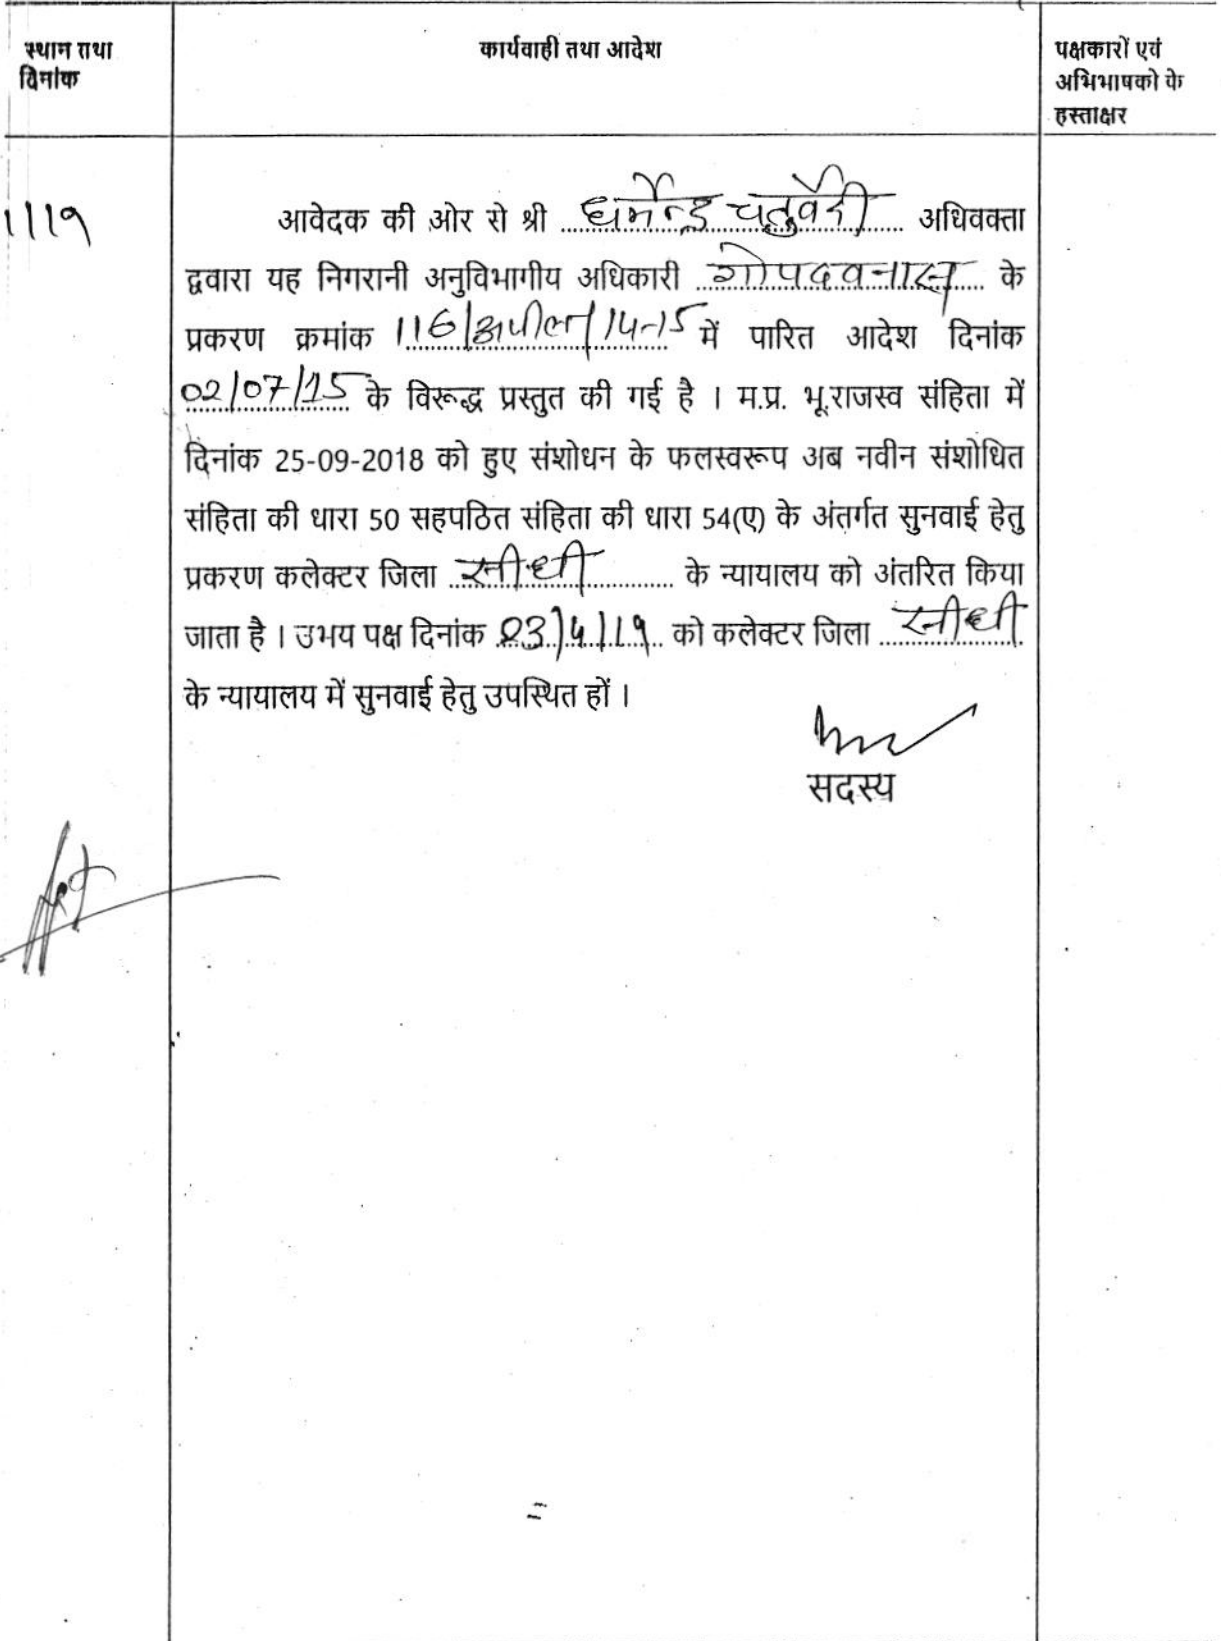 स्थान तथा
दिनांक
कार्यवाही तथा आदेश
पक्षकारों एवं
अभिभाषको के
हस्ताक्षर
1/19
आवेदक की ओर से श्री धर्मेन्द्र चतुर्वेदी अधिवक्ता
द्वारा यह निगरानी अनुविभागीय अधिकारी गोपदवनास के
प्रकरण क्रमांक 116/अपील/14-15 में पारित आदेश दिनांक
02/07/15 के विरूद्ध प्रस्तुत की गई है । म.प्र. भू.राजस्व संहिता में
दिनांक 25-09-2018 को हुए संशोधन के फलस्वरूप अब नवीन संशोधित
संहिता की धारा 50 सहपठित संहिता की धारा 54(ए) के अंतर्गत सुनवाई हेतु
प्रकरण कलेक्टर जिला सीधी के न्यायालय को अंतरित किया
जाता है । उभय पक्ष दिनांक 23/4/19 को कलेक्टर जिला सीधी
के न्यायालय में सुनवाई हेतु उपस्थित हों ।
सदस्य